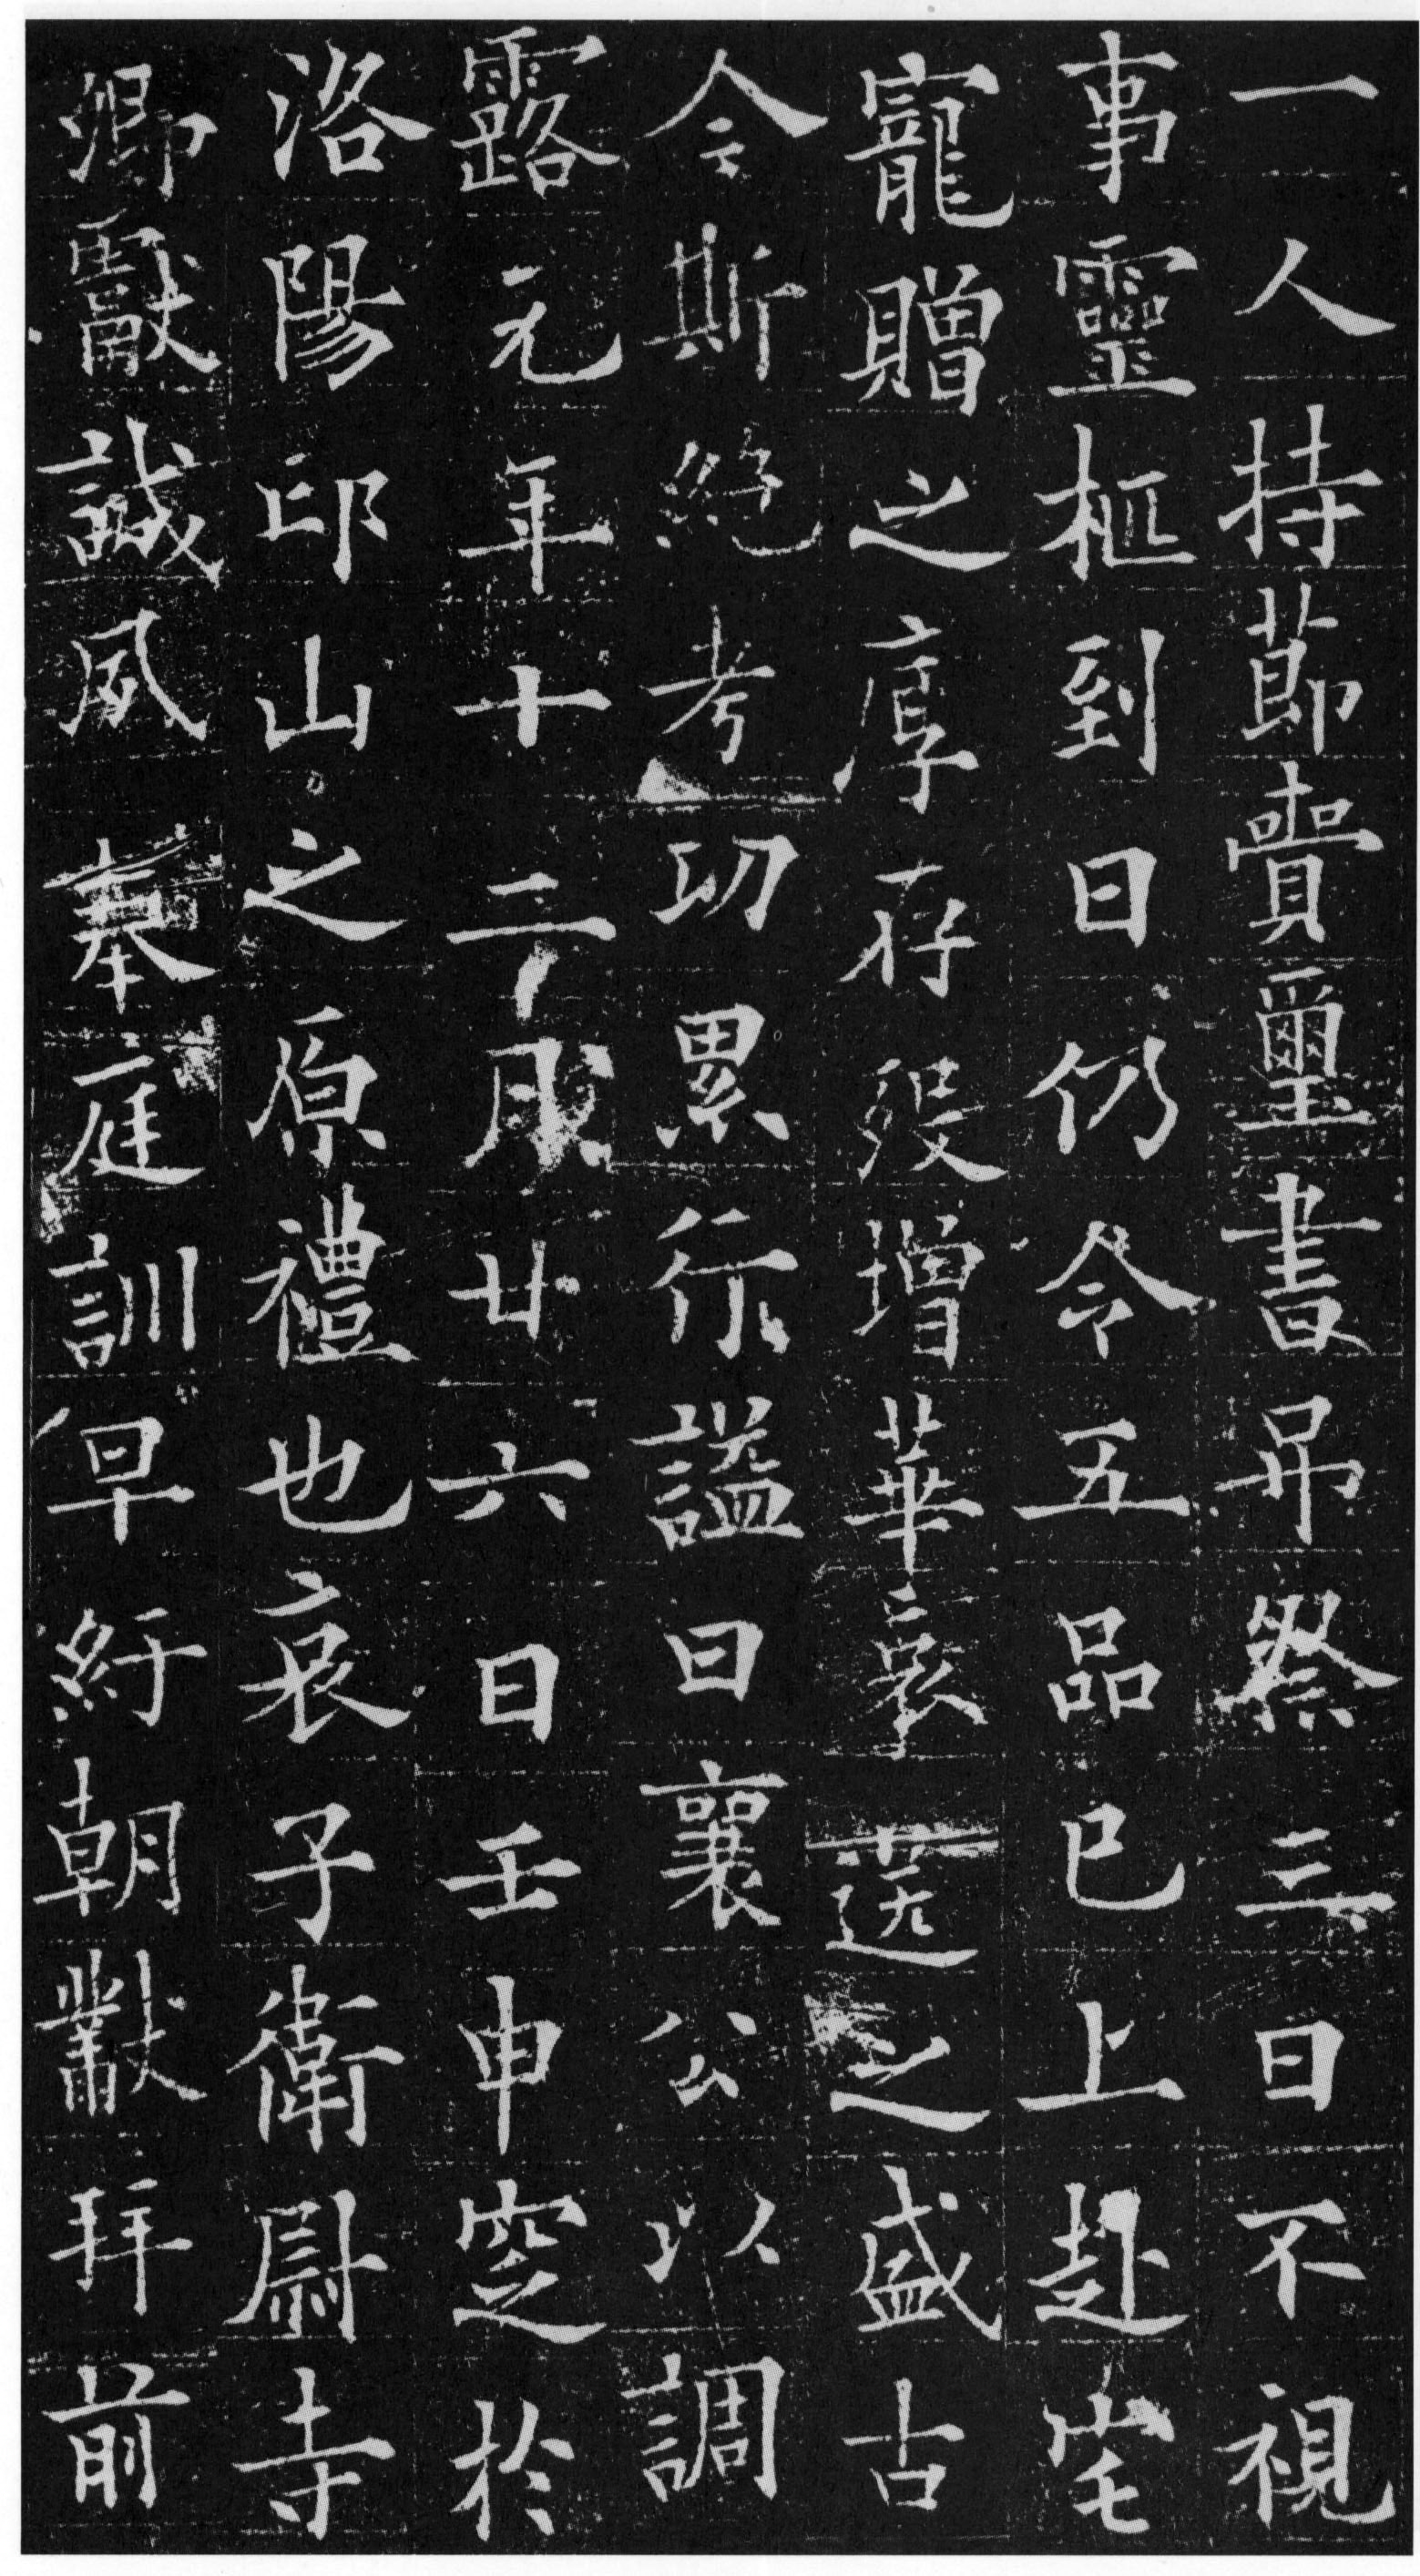 一人持節賷璽書吊祭三日不視
事靈柩到日仍令五品已上赴宅
寵贈之厚存歿增華哀送之盛古
今斯絕考功累行謚曰襄公以調
露元年十二月廿六日壬申窆於
洛陽邙山之原禮也哀子衛尉寺
卿獻誠夙奉庭訓早紆朝獻拜前